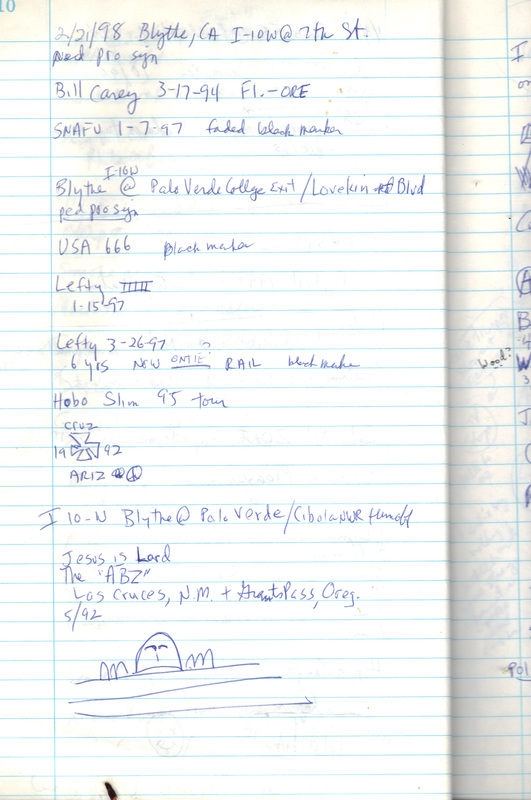 10
2/21/98 Blythe, CA I-10W @ 7th St.
ped pro sign
Bill Carey 3-17-94 Fl.-ORE
SNAFU 1-7-97 faded black marker
I-10W
Blythe @ Palo Verde College Exit / Lovekin Blvd
ped pro sign
USA 666 Black marker
Lefty IIIIII
1-15-97
Lefty 3-26-97 ?
6 yrs NEW ON TIE RAIL black marker
Hobo Slim 95 tour
CRUZ
19 92
ARIZ
I 10-N Blythe @ Palo Verde/Cibola NWR turnoff
Jesus is Lord
The "ABZ"
Las Cruces, N.M. + Grants Pass, Oreg.
5/92
Wood?